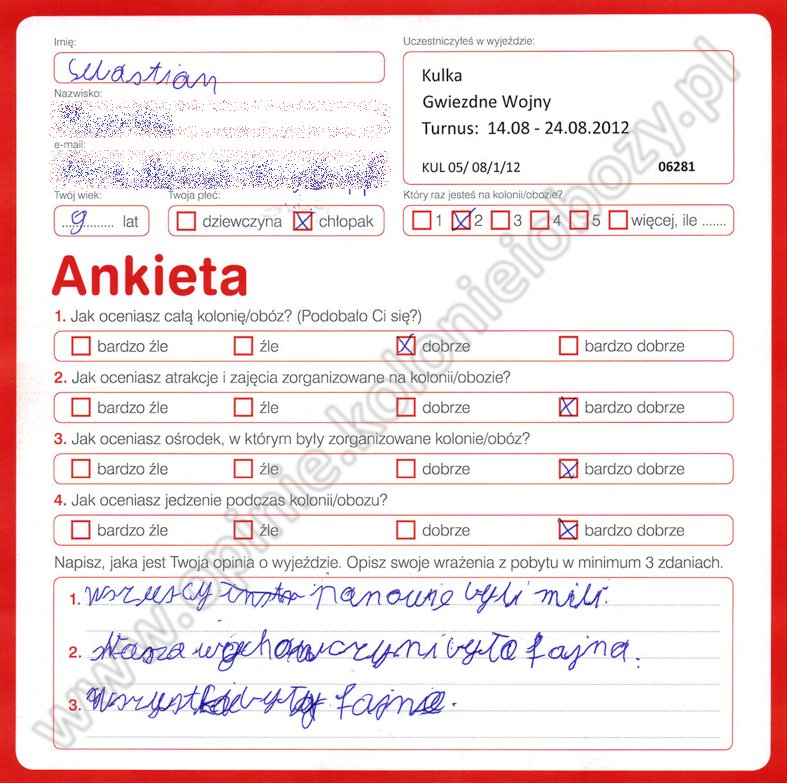 Imię:
Sebastian
Uczestniczyłeś w wyjeździe:
Kulka
Gwiezdne Wojny
Turnus: 14.08 - 24.08.2012
KUL 05/ 08/1/12 06281
Nazwisko:
e-mail:
Twój wiek:
9 lat
Twoja płeć:
dziewczyna chłopak
Który raz jesteś na kolonii/obozie?
1 2 3 4 5 więcej, ile .......
Ankieta
1. Jak oceniasz całą kolonię/obóz? (Podobało Ci się?)
bardzo źle źle dobrze bardzo dobrze
2. Jak oceniasz atrakcje i zajęcia zorganizowane na kolonii/obozie?
bardzo źle źle dobrze bardzo dobrze
3. Jak oceniasz ośrodek, w którym były zorganizowane kolonie/obóz?
bardzo źle źle dobrze bardzo dobrze
4. Jak oceniasz jedzenie podczas kolonii/obozu?
bardzo źle źle dobrze bardzo dobrze
Napisz, jaka jest Twoja opinia o wyjeździe. Opisz swoje wrażenia z pobytu w minimum 3 zdaniach.
1. Wszyscy panowie byli mili.
2. Nasza wychowawczyni była fajna.
3. Wszystko było fajne.
www.opinie.kolonieiobozy.pl